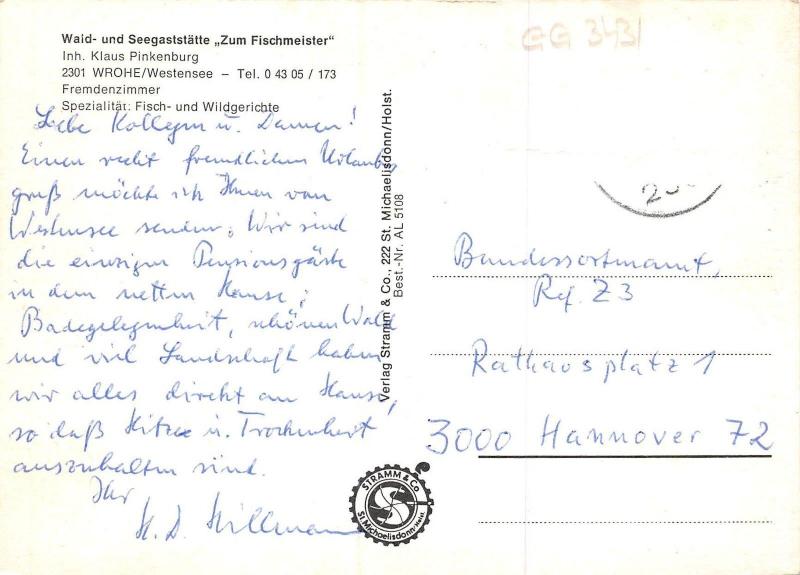 Wald- und Seegaststätte „Zum Fischmeister“
Inh. Klaus Pinkenburg
2301 WROHE/Westensee – Tel. 0 43 05 / 173
Fremdenzimmer
Spezialität: Fisch- und Wildgerichte
Liebe Kollegen u. Damen!
Einen recht freundlichen Urlaubs
gruß möchte ich Ihnen vom
Westensee senden. Wir sind
die einzigen Pensionsgäste
in dem netten Hause;
Badegelegenheit, schönen Wald
und viel Landschaft haben
wir alles direkt am Hause,
so daß Hitze u. Trockenheit
auszuhalten sind.
Ihr
H. D. Hillmann
Verlag Stramm & Co., 222 St. Michaelisdonn/Holst.
Best.-Nr. AL 5108
STRAMM & Co
St. Michaelisdonn/Holst.
GG 343
Bundessortenamt,
Ref. Z3
Rathausplatz 1
3000 Hannover 72